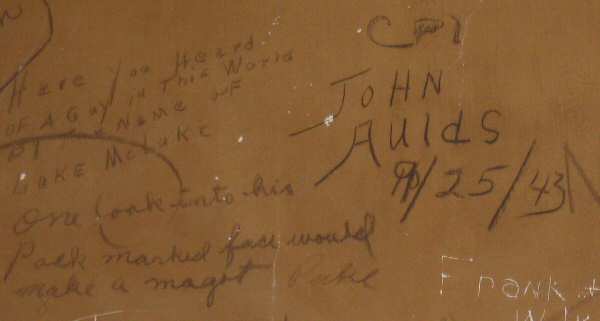 Have You Heard
OF A Guy in This World
BY Name OF
LUKE McLUKE
One look into his
Pock marked face would
make a magot Puke
CPl
JOHN
AUldS
9/25/43
Frank +